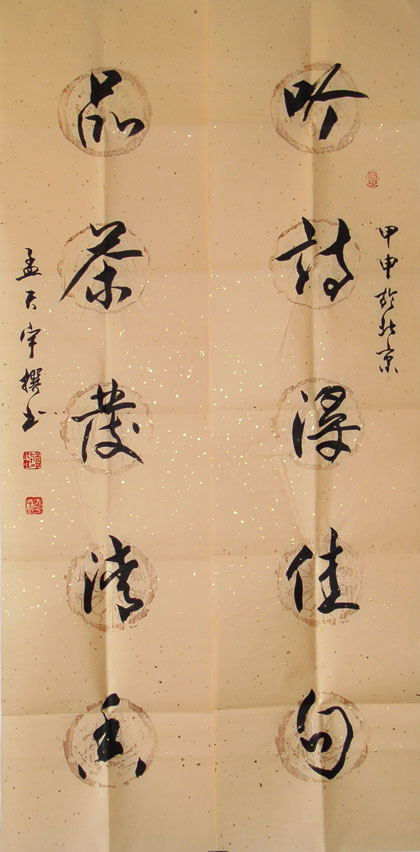 甲申於北京
吟詩得佳句
品茶發清香
孟天宇撰书